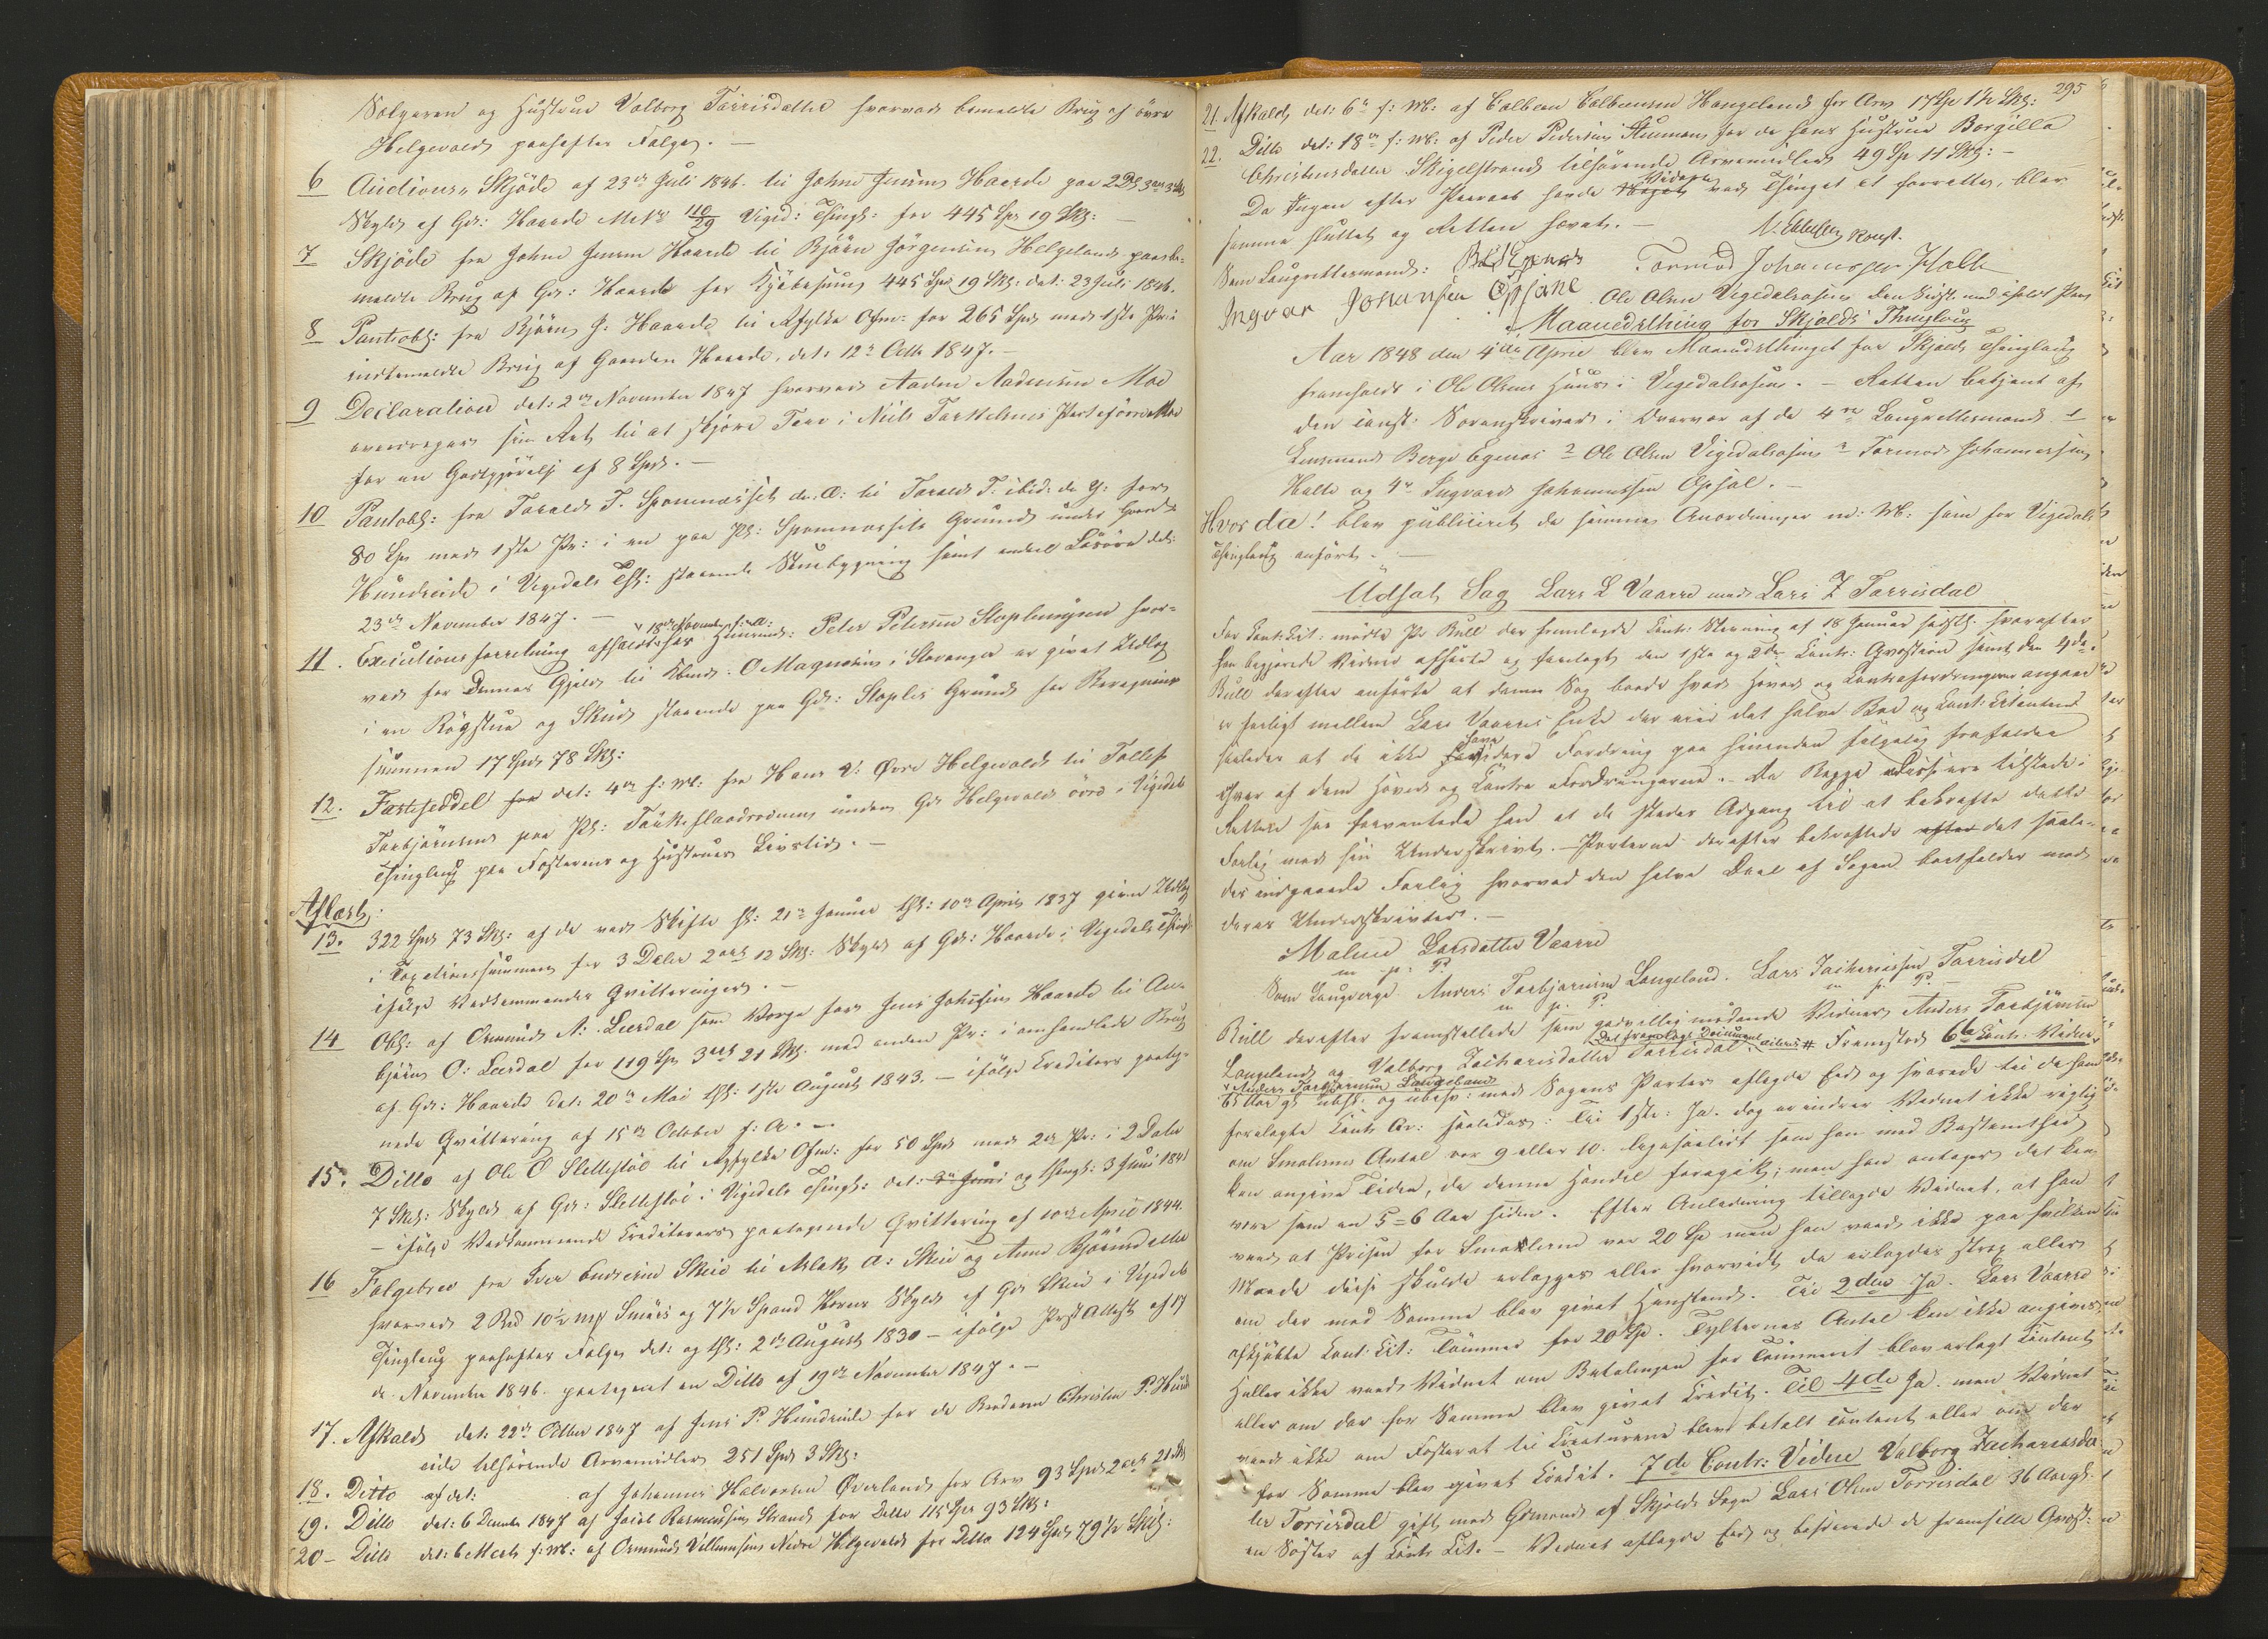 Sælgeren og Hustrue Valborg Torrisdatter hvorved bemeldte Brug af övre
Helgevold paaheftes Folge. —
6 Auctions-Skjöde af 23de Juli 1846. til Johne Jensen Haarde paa
Skyld af Gd: Haarde Mat No 110/29 Viged: Thingl: for 445 Spd 19 Skl: —
7 Skjöde fra Johne Jensen Haarde til Björn Jörgensen Helgeland paa be-
meldte Brug af Gd: Haarde for Kjöbesum 445 Spd 19 Skl: dat: 23 Juli 1846.
8 Pantobl: fra Björn J. Haarde til Ryfylke Ofm: for 265 Spd med 1ste Pr: i
indbemeldte Brug af Gaarden Haarde, dat: 12te Octb 1847. —
9 Declaration dat: 2den November 1847 hvorved Aaden Aadensen Moe
overdrager sin Ret til at skjære Torv i Niels Torkelsens Part af övre Moe
for en Godtgjörelse af 8 Spd. —
10 Pantobl: fra Torald T. Sponnæsset d: A: til Torald T. ibid: d: y: for
80 Spd med 1ste Pr: i en paa Pl: Sponnæssets Grund under Gaard
Hundseide i Vigedals Thl: staaende Stuebygning samt endeel Lösöre dat:
23de November 1847. —
18de November f: A:
11. Executionsforretning afholdt hos Huusmd: Peter Petersen Staplemyren hvor-
ved for Dennes Gjæld til Kbmd: O Magnesen i Stavanger er givet Udlæg
i en Rögstue og Skud staaende paa Gd: Staples Grund for Beregnings
summen 17 Spd 78 Skl:
12. Fæsteseddel fra dat: 4de f: M: fra Hans V: Övre Helgevold til Tollef
Torbjörnsen paa Pl: underr Gd Helgevold övre i Vigedals
Thinglaug paa Fæsterens og Hustrues Livstid. —
Aflæst:
13. 322 Spd 73 Skl: af de ved Skifte sl: 21de Januar thl: 10de April 1837 givne Udlæg
i Taxationssummen for 3 Daler 2 ort 12 Skl: Skyld af Gd: Haarde i Vigedals Thingl:
ifölge Vedkommendes Qvitteringer. —
14 Obl: af Osmund N: Leerdal som Værge for Jens Johnsen Haarde til An-
björn O: Lerdal for 119 Spd 3 ort 21 Skl: med anden Pr: i omhandlede Brug
af Gd: Haarde dat: 20de Mai thl: 1ste August 1843. — ifölge Creditors paateg-
nede Qvittering af 15de October f: A. —
15. Ditto af Ole O Slettestöe til Ryfylke Ofm: for 50 Spd med 2den Pr: i 2 Daler
7 Skl: Skyld af Gd: Slettestöe i Vigedals Thingl: dat: og thingl: 3 Juni 1841
— ifölge Vedkommende Creditorers paategnede Qvittering af 10de April 1844.
16 Folgebrev fra Iver Endresen Skeie til Aslak A: Skeie og Anna Björnsdatter
hvorved 2 Bd 10½ mk Smörs og 7½ Spand Korns Skyld af Gd Skeie i Vigedals
Thinglaug paaheftes Folge dat: og thl: 2de August 1830 — ifölge Præst Attest af 17
de November 1846. paategnet en Ditto af 19de November 1847. —
17. Afkald dat: 22de Octber 1847 af Jens P. Hundseide for de Broderen Christen P. Hund-
seide tilhörende Arvemidler 251 Spd 3 Skl:
18. Ditto af dat: af Johannes Halvorsen Överland for Arv 93 Spd 2 ort 21 Skl
19. Ditto dat: 6 December 1847 af Jacob Rasmussen Strand for Ditto 115 Spd 93 Skl:
20 — Ditto dat: 6 Marts f: M: af Osmund Villumsen Nedre Helgevold for Ditto 124 Spd 79½ Skl:
295
21. Afkald dat: 6te f: M: af Colbeen Colbeensen Hongeland for Arv 17 Spd 1½ Skl:
22. Ditto dat: 18de f: M: af Peder Pedersen for de hans Hustrue Borgilla
Christensdatter Skigelstrand tilhörende Arvemidler 49 Sp 11 Skl: —
Da Ingen efter Paaraab havde Videre ved Thinget at forrette, blev
samme sluttet og Retten hævet. —
Konst.
Som Laugrettesmænd: B: L: Egenæs Tormod Johannesen Halle
Ingvar Johansen Opsane Ole Olsen Vigedalsosen den Sidste med iholdt Pen
Maanedsthing for Skjolds Thinglaug
Aar 1848 den 4de April blev Maanedsthinget for Skjolds Thinglaug
fremholdt i Ole Olsens Huus i Vigedalsosen. — Retten betjent af
den const: Sorenskriver i Overvær af de 4re Laugrettesmænd 1
Lensmand Berge Egenæs 2 Ole Olsen Vigedalsosen 3 Tormod Johannessen
Halle og 4 Ingvard Johannessen Opsal. —
Hvor da! blev publiceret de samme Anordninger m: M: som for Vigedals
Thinglaug anfört. —
Udsat Sag Lars L Vaarre mod Lars Z Torrisdal
For Cont: Cit: mödte Pr Bull der fremlagde Cont: Stevning af 18 Januar sidstl: hvorefter
han begjærede Vidner afhörte og foreslagt den 1ste og 2den Contr: Qvæstion samt den 4de.
Bull derefter anförte at denne Sag baade hvad Hoved og Contrafordringerne angaar
er forligt mellem Lars Vaarres Enke der eier det halve Boe og Cont: Citanten
saaledes at de ikke have videre Fordring paa hinanden fölgelig frafaldes
hver af dem Hoved og Contra Fordringerne. — Da Begge Disse ere tilstede i
Retten saa forventede han at de stedes Adgang til at bekræfte dette
Forlig med sin Underskrivt. — Parterne derefter bekræftede det saale-
des indgaaede Forlig hvorved den halve Deel af Sagen bortfalder med
deres Underskrivter. —
Malene Larsdatter Vaarre
m p. P.
Som Laugværge Anders Torbjørnsen Langeland. Lars Zachariassen Torrisdal
m p. P. m p. P.
Bull derefter fremstillede som godvillig mödende Vidner Anders Torbjørnsen
Langeland og Valborg Zachariasdatter Torrisdal. Det fremlagte Document aciteres # Fremstod 6te Contr. Vidne
Anders Torbjørnsen Langeland
65 Aar gl: ubsl: og ubesv: med Sagens Parter aflagde Eed og svarede til de ham
forelagte Contr Qv: saaledes: Til 1ste: Ja. dog erindrer Vidnet ikke rigtig
om Smalernes Antal var 9 eller 10. ligesaalidt som han med Bestemthed
kan angive Tiden, da denne Handel foregik; men han antager det kan
være som en 5-6 Aar siden. Efter Anledning tillagde Vidnet, at han
veed at Prisen for Smalerne var 20 Sp men han veed ikke paa hvilken
Maade disse skulde erlægges eller hvorvidt de erlagdes strax eller
om der med Samme blev givet Henstand. Til 2den Ja. Lars Vaarre
afkjöbte Cont: Cit: Tömmer for 20 Sp. Tylternes Antal kan ikke angives
Heller ikke veed Vidnet om Betalingen for Tömmeret blev erlagt Contant
eller om der for Samme blev givet Credit. Til 4de Ja. men Vidnet
veed ikke om Fosteret til Creaturene blev betalt Contant eller om der
for Samme blev givet Credit. 7de Contr: Vidne Valborg Zachariasdat-
ter Torrisdal gift med Gdmand af Skjolds Sogn Lars Olsen Torrisdal 36 Aar gl:
en Söster af Contr Cit. — Vidnet aflagde Eed og besvarede de fremstille Qvæst: